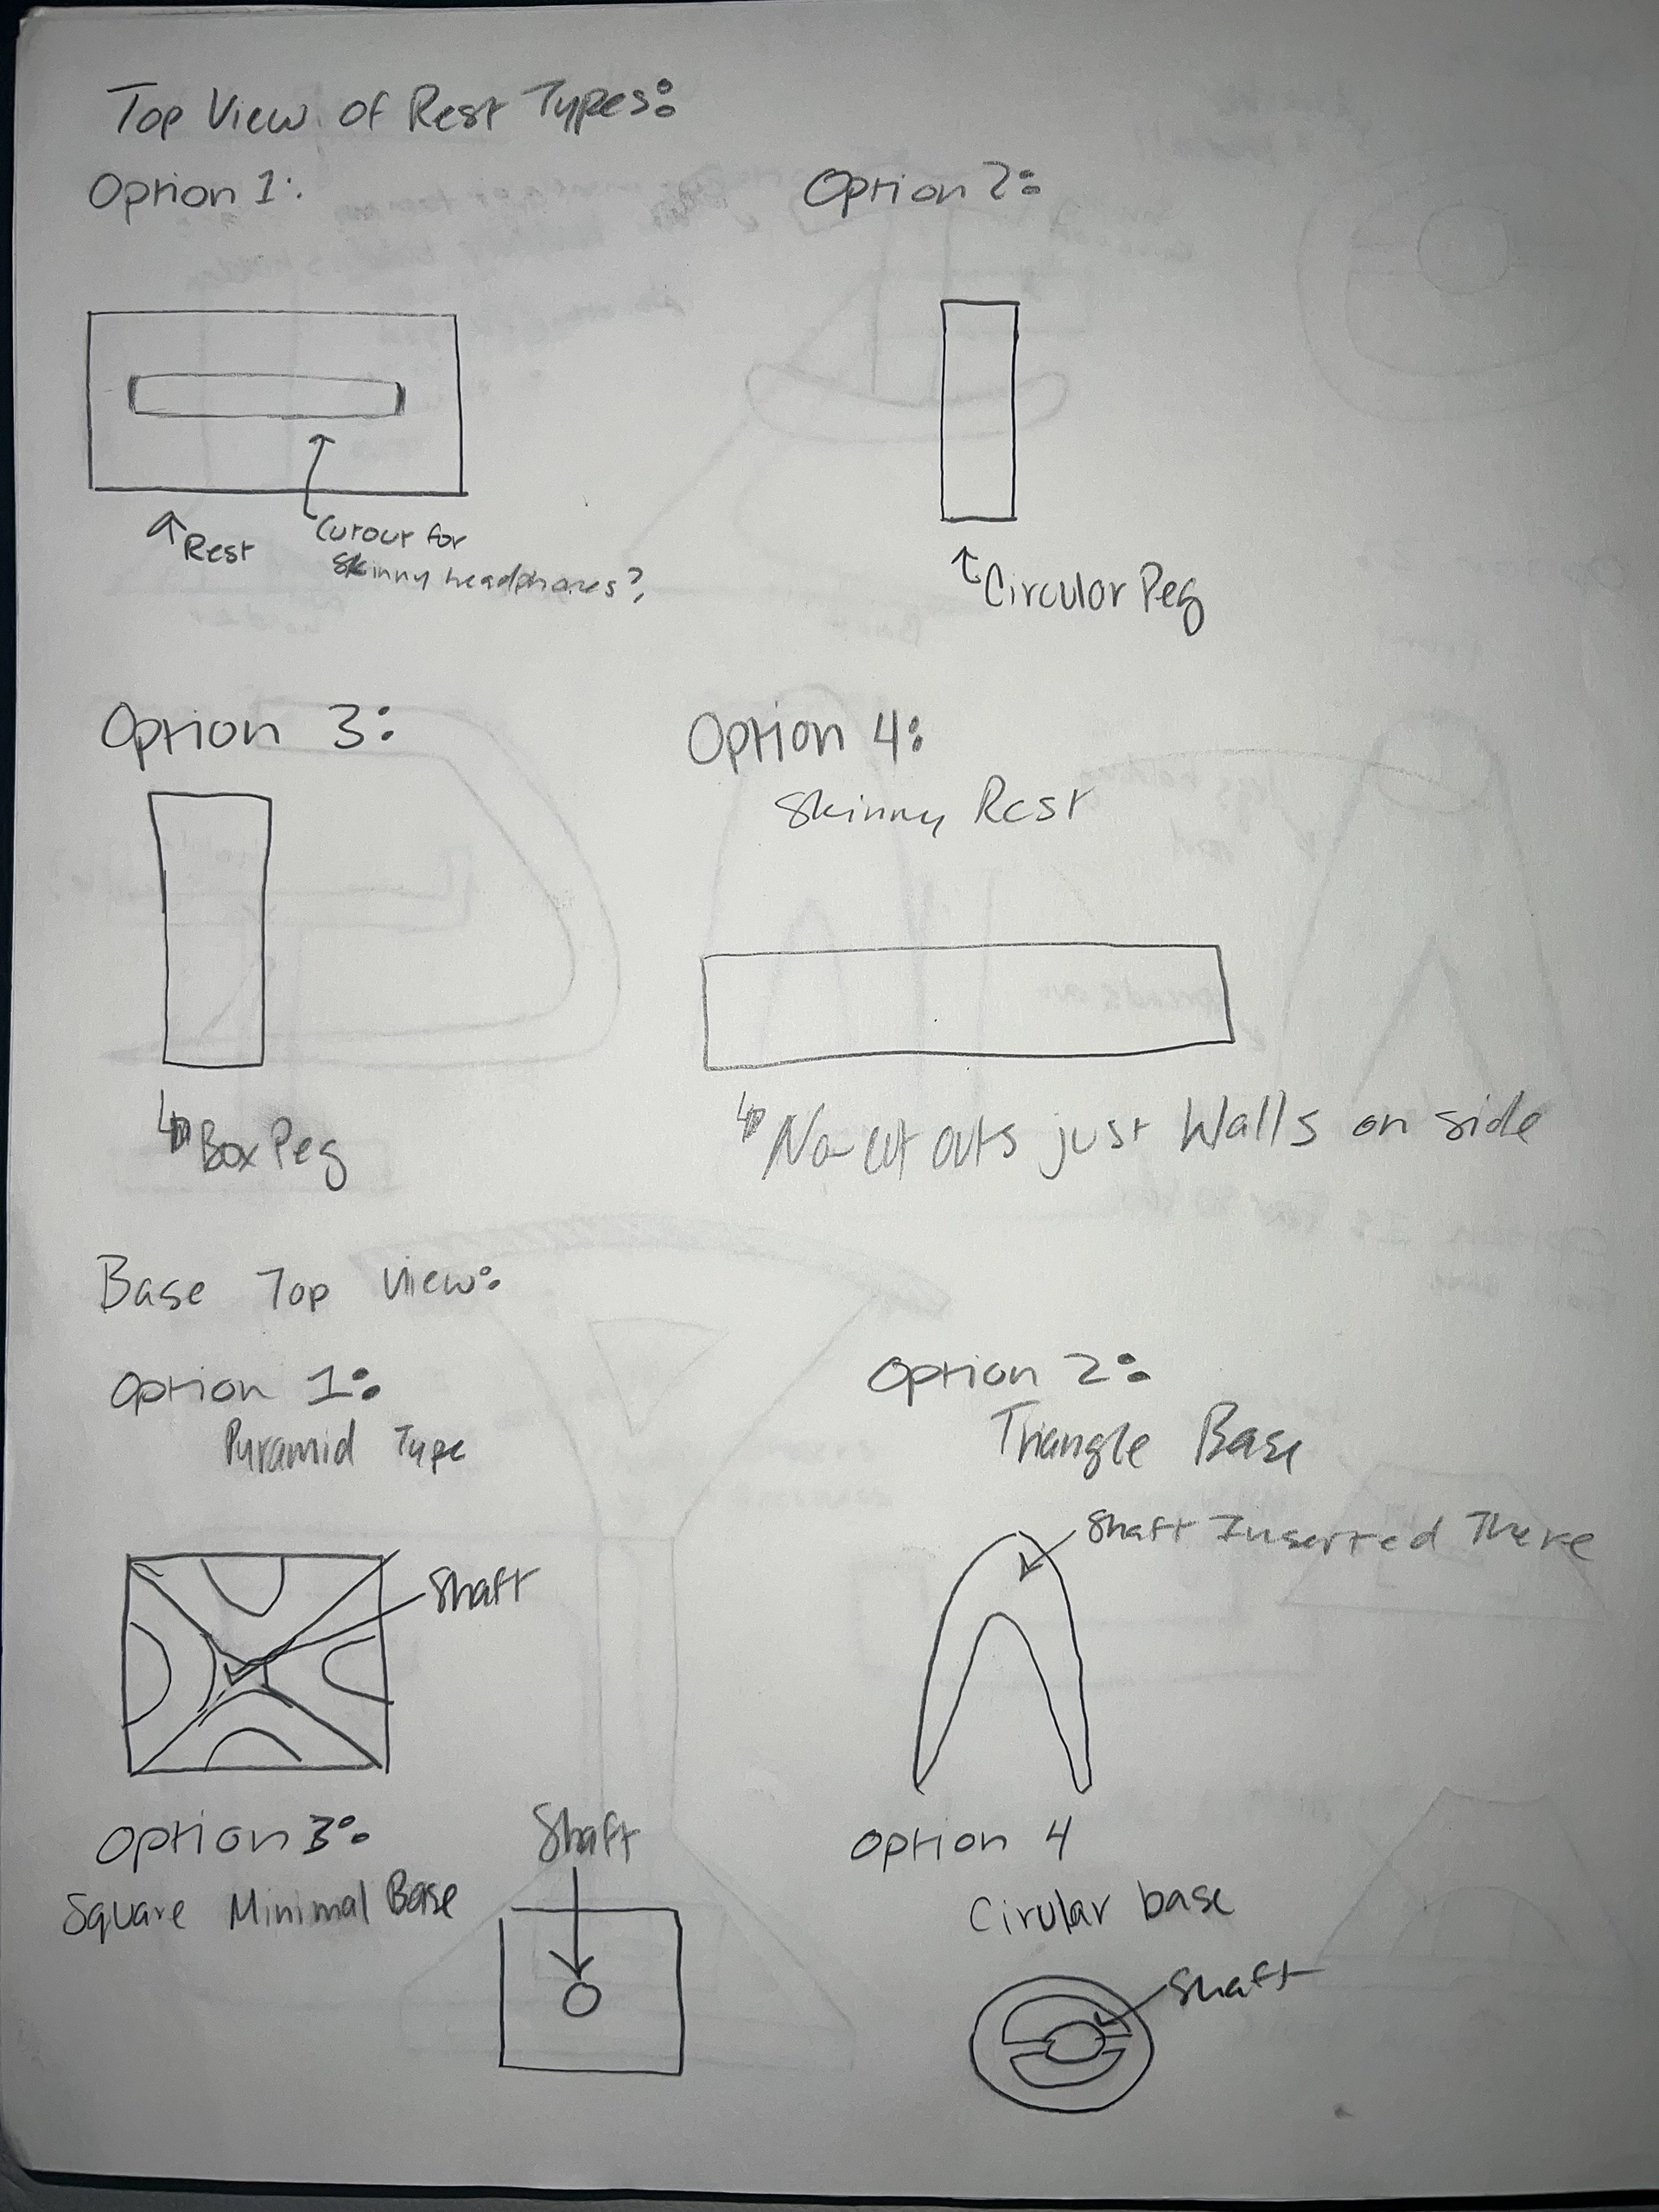 Top View of Rest Types:
Option 1:
Option 2:
Rest
Cutout for
skinny headphones?
Circular Peg
Option 3:
Option 4:
Skinny Rest
Box Peg
No cut outs just Walls on side
Base Top View:
Option 1:
Pyramid Type
Option 2:
Triangle Base
Shaft Inserted There
Shaft
Option 3:
Square Minimal Base
Shaft
Option 4
Cirular base
Shaft